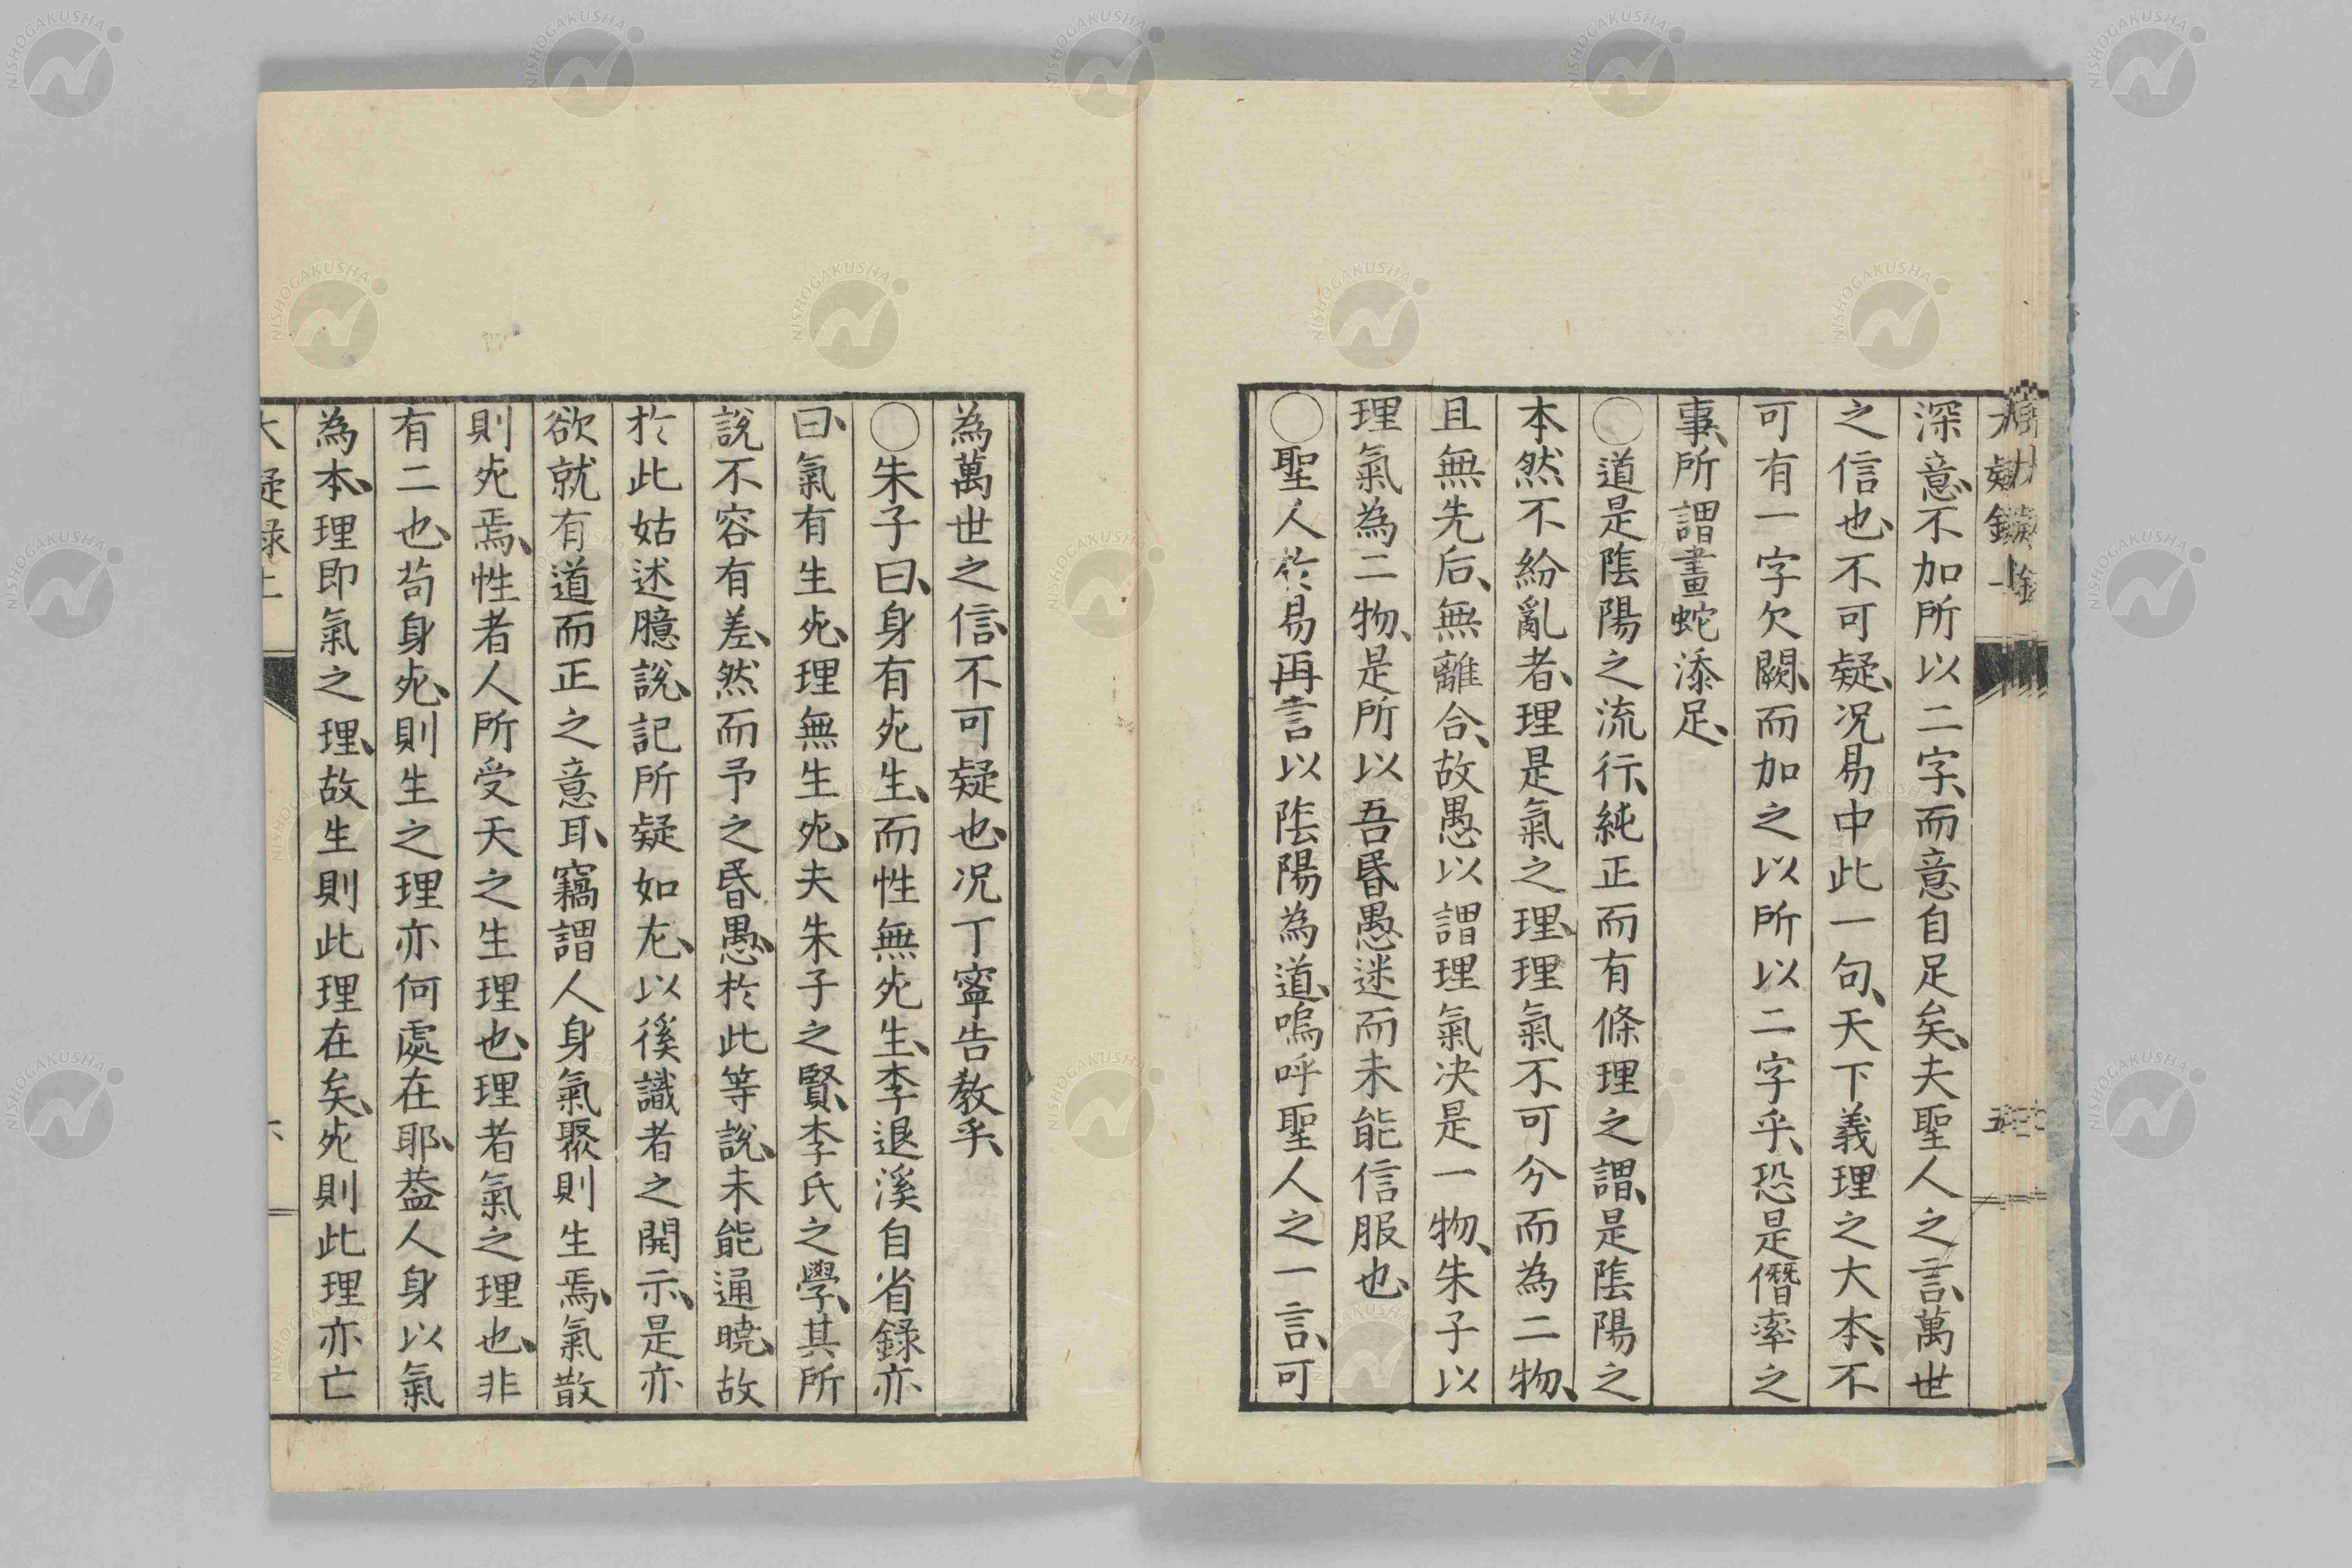 深意、不加所以二字、而意自足矣、夫聖人之言、萬世
之信也、不可疑、况易中此一句、天下義理之大本、不
可有一字欠闕、而加之以所以二字乎、恐是僭率之
事、所謂畫蛇添足、
〇道是陰陽之流行、純正而有條理之謂、是陰陽之
本然不紛亂者、理是氣之理、理氣不可分而為二物、
且無先后、無離合、故愚以謂理氣决是一物、朱子以
理氣為二物、是所以吾昏愚迷而未能信服也、
〇聖人於易再言以陰陽為道、嗚呼聖人之一言、可
為萬世之信、不可疑也、况丁寧告教乎、
〇朱子曰、身有死生、而性無死生、李退溪自省録亦
曰、氣有生死、理無生死、夫朱子之賢、李氏之學、其所
說不容有差、然而予之昏愚、於此等說、未能通曉、故
於此姑述臆說、記所疑如左、以後識者之開示、是亦
欲就有道而正之意耳、竊謂人身氣聚則生焉、氣散
則死焉、性者人所受天之生理也、理者氣之理也、非
有二也、苟身死、則生之理亦何處在耶、蓋人身以氣
為本、理即氣之理、故生則此理在矣、死則此理亦亡
大疑録上
NISHOGAKUSHA